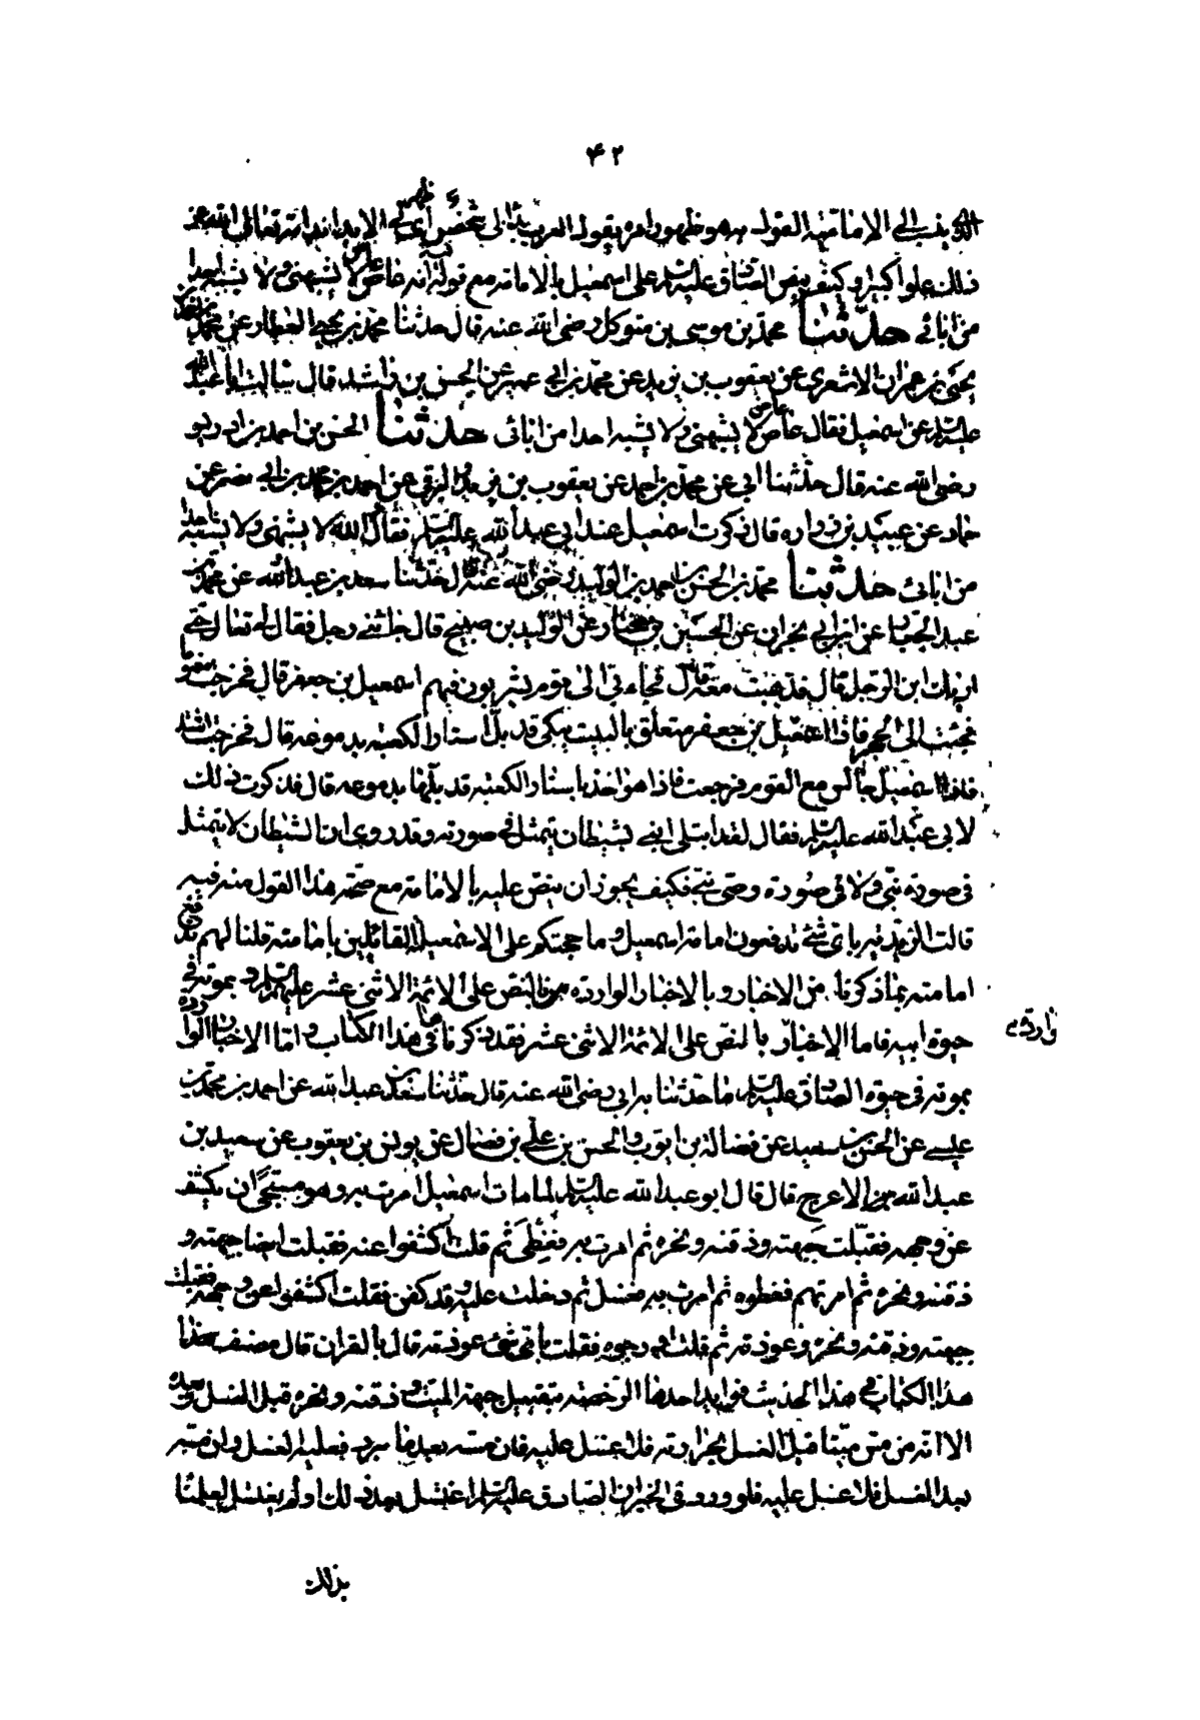 ۴۲
الذي ينسب إلى الإمامية القول به هو ظهور امره يقول العرب بدا لي شخص أي ظهر لي لا بداء ندامة تعالى الله عن
ذلك علوا كبيرا وكيف ينص الصادق عليه السلام على اسمعيل بالامامة مع قوله فيه انه عاص لا يشبهني ولا يشبه احدا
من ابائي حدثنا محمد بن موسى بن متوكل رضى الله عنه قال حدثنا محمد بن يحيى العطار عن محمد بن احمد بن
يحيى بن عمران الاشعرى عن يعقوب بن يزيد عن محمد بن ابي عمير عن الحسن بن راشد قال سالت ابا عبد الله
عليه السلام عن اسمعيل فقال عاص عاص لا يشبهني ولا يشبه احدا من ابائى حدثنا الحسن بن احمد بن ادريس
رضى الله عنه قال حدثنا ابي عن محمد بن احمد عن يعقوب بن يزيد و البرقي عن احمد بن محمد بن ابي نصر عن
حماد عن عبيد بن زراره قال ذكرت اسمعيل عند ابي عبد الله عليه السلام فقال والله لا يشبهني ولا يشبه احدا
من ابائى حدثنا محمد بن الحسن بن احمد بن الوليد رضى الله عنه قال حدثنا سعد بن عبد الله عن محمد بن
عبد الجبار عن ابن ابي نجران عن الحسين بن مختار عن الوليد بن صبيح قال جائنى رجل فقال لي تعال حتى
اريك ابن الرجل قال فذهبت معه قال فجاء بي الى قوم يشربون فيهم اسمعيل بن جعفر قال فخرجت مغموما
فجئت الى الحجر فاذا اسمعيل بن جعفر متعلق بالبيت يبكى قد بل استار الكعبة بدموعه قال فخرجت اشتد
فاذا اسمعيل جالس مع القوم فرجعت فاذا هو اخذ باستار الكعبة قد بلها بدموعه قال فذكرت ذلك
لابي عبد الله عليه السلام فقال لقد ابتلى ابنى بشيطان يتمثل في صورته وقد روى ان الشيطان لا يتمثل
في صورة نبي ولا في صورة وصى نبي فكيف يجوز ان ينص عليه بالامامة مع صحة هذا القول منه فيه
قالت الزيدية باى شئ تدفعون امامة اسمعيل و ما حجتكم على الاسمعيلية القائلين بامامته قلنا لهم ندفع
امامته بما ذكرنا من الاخبار و بالاخبار الوارده بالنص على الائمة الاثنى عشر عليهم السلام و بموته في
حيوة ابيه فاما الاخبار بالنص على الائمة الاثنى عشر فقد ذكرناها في هذا الكتاب و اما الاخبار الواردة
واردة
بموته في حيوة الصادق عليه السلام ما حدثنا به ابي رضى الله عنه قال حدثنا سعد بن عبد الله عن احمد بن محمد بن
عيسى عن الحسين بن سعيد عن فضالة بن ايوب والحسن بن على بن فضال عن يونس بن يعقوب عن سعيد بن
عبد الله الاعرج قال قال ابو عبد الله عليه السلام لما مات اسمعيل امرت به وهو مسجى ان يكشف
عن وجهه فقبلت جبهته وذقنه ونحره ثم امرت به فغطى ثم قلت اكشفوا عنه فقبلت ايضا جبهته و
ذقنه ونحره ثم امرتهم فغطوه ثم امرت به فغسل ثم دخلت عليه وقد كفن فقلت اكشفوا عن وجهه فقبلت
جبهته وذقنه ونحره وعوذته ثم قلت ادرجوه فقلت باى شئ عوذته قال بالقران قال مصنف هذا
هذا الكتاب في هذا الحديث فوايد احدها الرخصة بتقبيل جبهة الميت و ذقنه ونحره قبل الغسل وبعده
الا انه من مس ميتا قبل الغسل بحرارته فلا غسل عليه فان مسه بعد ما يبرد فعليه الغسل وان مسه
بعد الغسل فلا غسل عليه فلو ورد في الخبر ان الصادق عليه السلام اغتسل بعد ذلك او لم يغتسل لعلمنا
بذلك